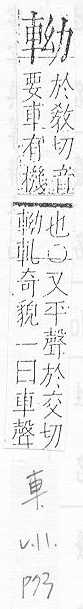 䡈
於敎切音
要車有機
也○又平聲於交切
䡈軋奇貌一曰車聲
車
V.11.
P93